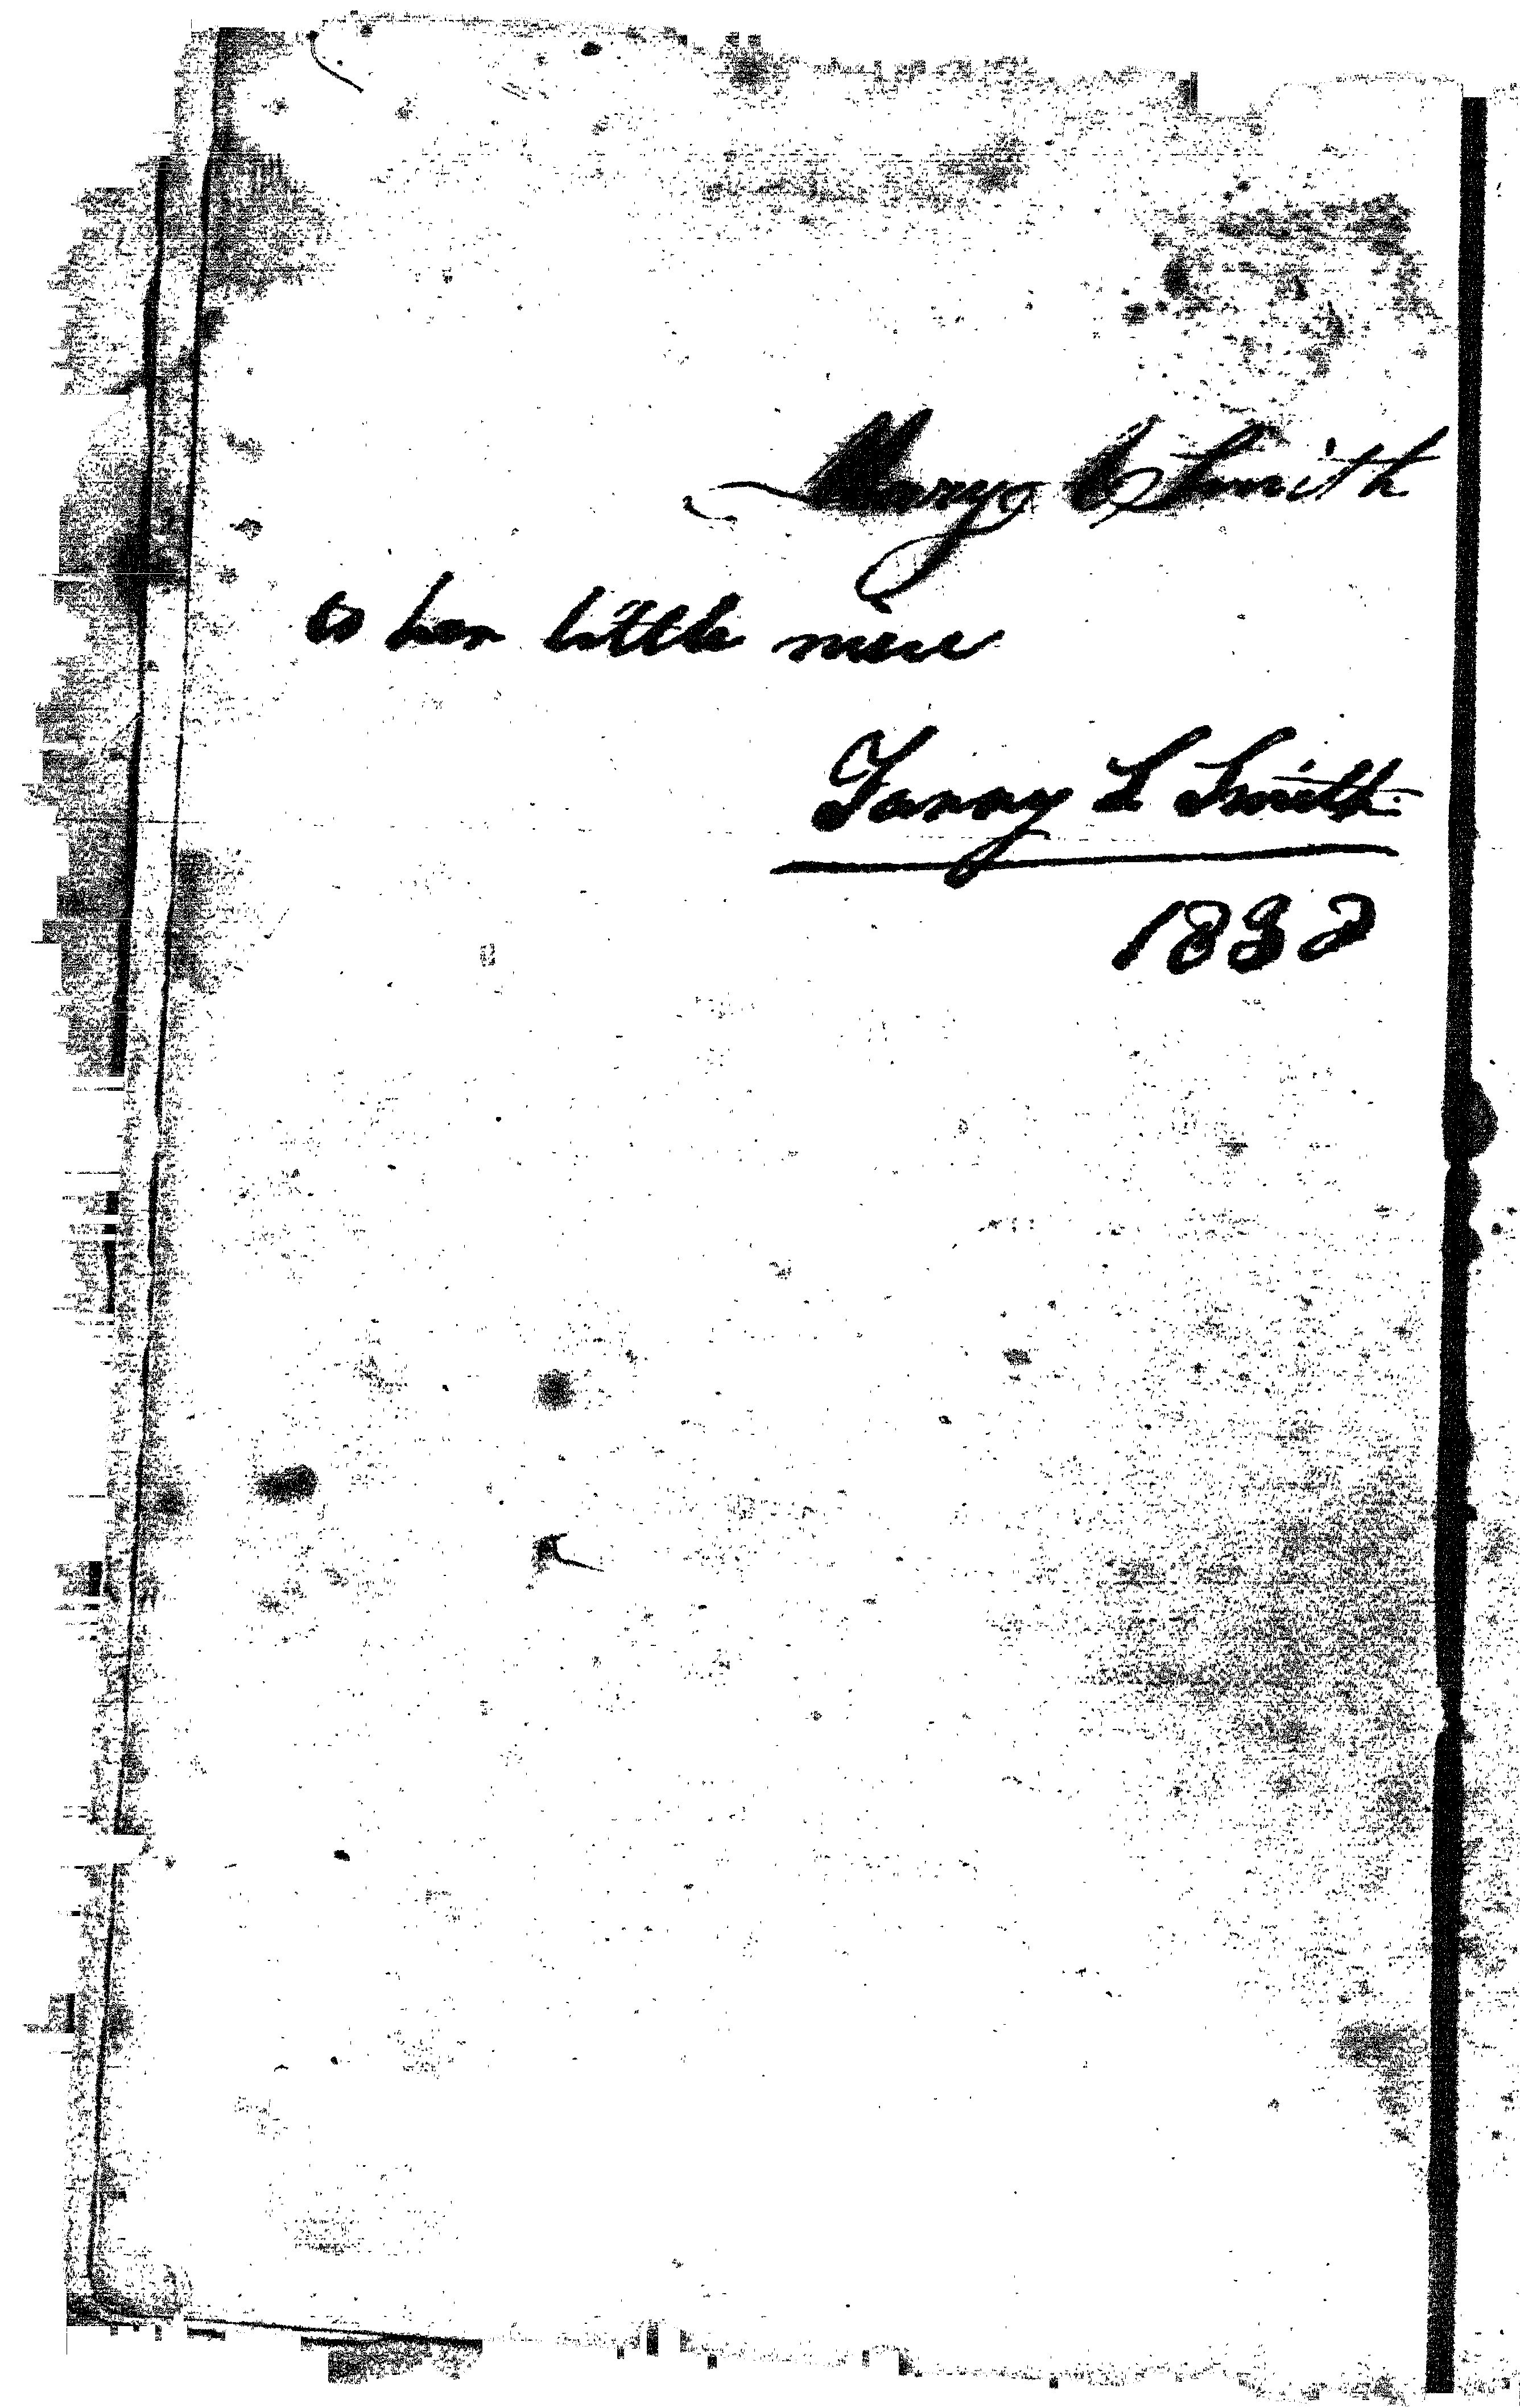 Mary C Smith
to her little niece
Fanny L Smith
1833